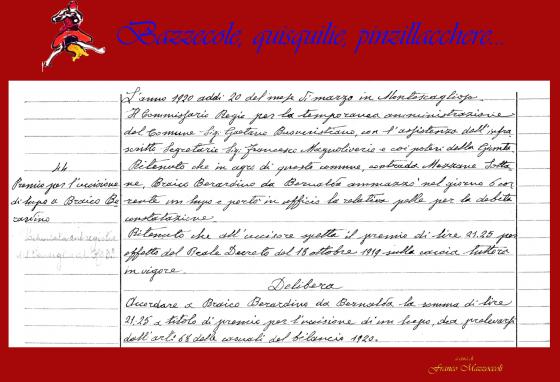 Bazzecole, quisquilie, pinzillacchere...
L'anno 1920 addì 20 del mese di marzo in Montescaglioso
Il Commissario Regio per la temporanea amministrazione
del Comune Sig. Gaetano con l'assistenza dell'infra
scritto Segretario Sig. Francesco e coi poteri della Giunta
Ritenuto che in agro di questo comune, contrada Mezzane Sotta
ne, Braico Berardino da Bernalda ammazzò nel giorno 5 cor
rente un lupo e portò in ufficio la relativa pelle per la debita
constatazione.
Ritenuto che all'uccisore spetta il premio di lire 21.25 per
effetto del Reale Decreto del 18 ottobre 1919 sulla caccia tuttora
in vigore.
Delibera
Accordare a Braico Berardino da Bernalda la somma di lire
21.25 a titolo di premio per l'uccisione di un lupo, da prelevarsi
dall'art: 68 delle casuali del bilancio 1920.
44
Premio per l'uccisione
di lupo a Braico Be
rardino
a cura di
Franco Mazzoccoli